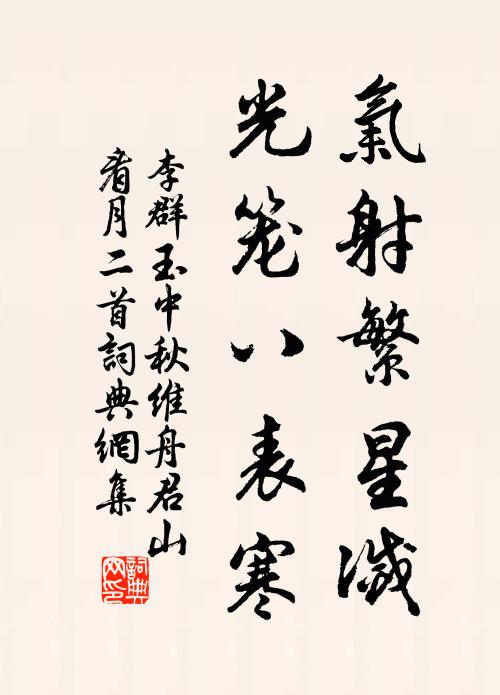 氣射繁星滅
光笼八表寒
李群玉中秋维舟君山
看月二首詞典網集
詞典
网印